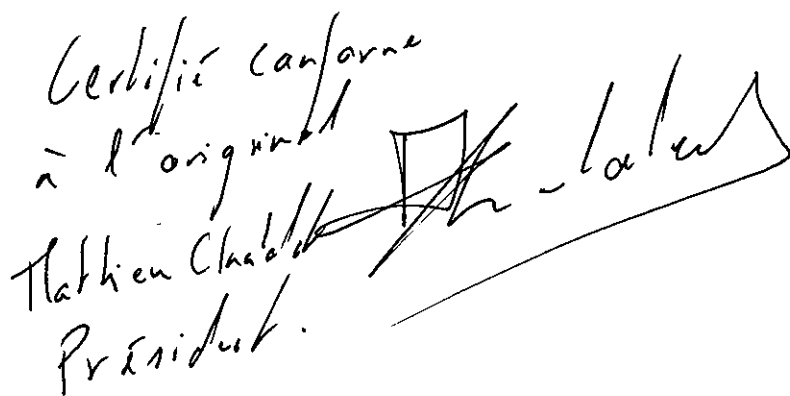 Certifié conforme
à l'original
Mathieu
Président.